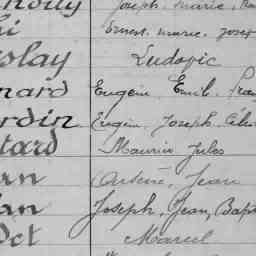 Joseph, marie,
Ernest, marie, Josep
Ludovic
nard Eugène Emil,
rdin Eugèn, Joseph,
tard Maurice Jules
an Arsène, Jean
an Joseph, Jean, Bapt
Marcel